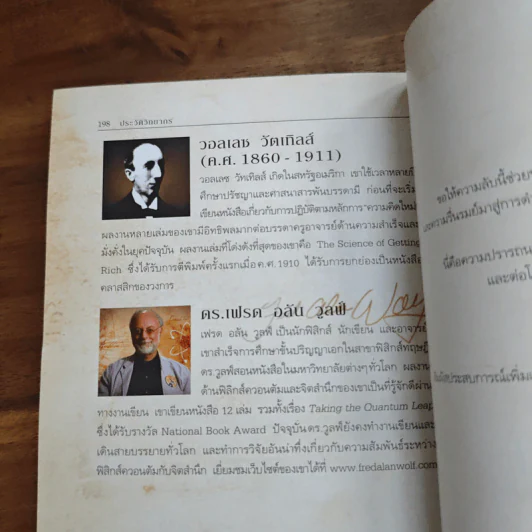 198 ประวัติวิทยากร
วอลเลซ วัตเทิลส์
(ค.ศ. 1860 - 1911)
วอลเลซ วัทเทิลส์ เกิดในสหรัฐอเมริกา เขาใช้เวลาหลายปี
ศึกษาปรัชญาและศาสนาสารพันบรรดามี ก่อนที่จะเริ่ม
เขียนหนังสือเกี่ยวกับการปฏิบัติตามหลักการ "ความคิดใหม่"
ผลงานหลายเล่มของเขามีอิทธิพลมากต่อบรรดาครูอาจารย์ด้านความสำเร็จและ
มั่งคั่งในยุคปัจจุบัน ผลงานเล่มที่โด่งดังที่สุดของเขาคือ The Science of Getting
Rich ซึ่งได้รับการตีพิมพ์ครั้งแรกเมื่อ ค.ศ. 1910 ได้รับการยกย่องเป็นหนังสือ
คลาสสิกของวงการ
ดร.เฟรด อลัน วูลฟ์
เฟรด อลัน วูลฟ์ เป็นนักฟิสิกส์ นักเขียน และอาจารย์
เขาสำเร็จการศึกษาชั้นปริญญาเอกในสาขาฟิสิกส์ทฤษฎี
ดร.วูลฟ์สอนหนังสือในมหาวิทยาลัยต่างๆ ทั่วโลก ผลงาน
ด้านฟิสิกส์ควอนตัมและจิตสำนึกของเขาเป็นที่รู้จักดีผ่าน
ทางงานเขียน เขาเขียนหนังสือ 12 เล่ม รวมทั้งเรื่อง Taking the Quantum Leap
ซึ่งได้รับรางวัล National Book Award ปัจจุบัน ดร.วูลฟ์ยังคงทำงานเขียนและ
เดินสายบรรยายทั่วโลก และทำการวิจัยอันน่าทึ่งเกี่ยวกับความสัมพันธ์ระหว่าง
ฟิสิกส์ควอนตัมกับจิตสำนึก เยี่ยมชมเว็บไซต์ของเขาได้ที่ www.fredalanwolf.com
ขอให้ความลับนี้ช่วย
และความรื่นรมย์มาสู่การดำ
นี่คือความปรารถนา
และต่อโ